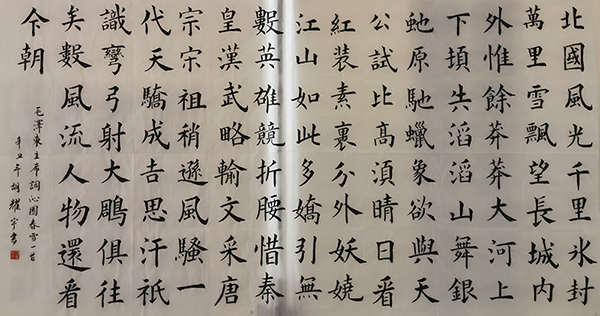 北國風光千里氷封
萬里雪飄望長城内
外惟餘莽莽大河上
下頓失滔滔山舞銀
虵原馳蠟象欲與天
公試比髙須晴日看
紅装素裹分外妖嬈
江山如此多嬌引無
數英雄競折腰惜秦
皇漢武略輸文采唐
宗宋祖稍遜風騷一
代天驕成吉思汗衹
識彎弓射大鵰俱往
矣數風流人物還看
今朝
毛澤東主席詞沁園春雪一首
辛丑年胡耀宇書